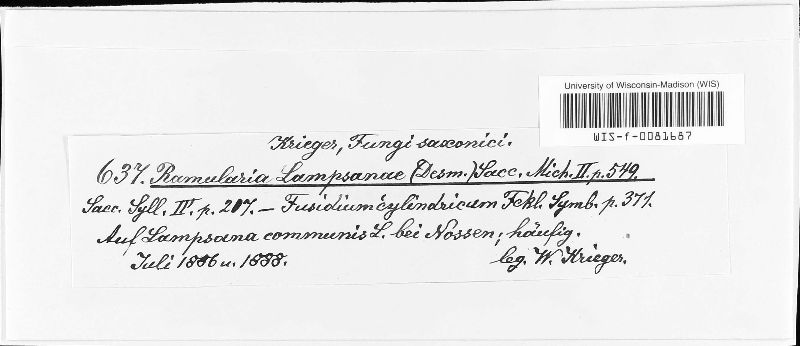 University of Wisconsin-Madison (WIS)
WIS-f-0081687
Krieger, Fungi saxonici.
637. Ramularia Lampsanae (Desm.) Sacc. Mich. II. p. 549.
Sacc. Syll. IV. p. 207. — Fusidium cylindricum Fckl. Symb. p. 371.
Auf Lampsana communis L. bei Nossen; häufig.
Juli 1886 u. 1888. leg. W. Krieger.